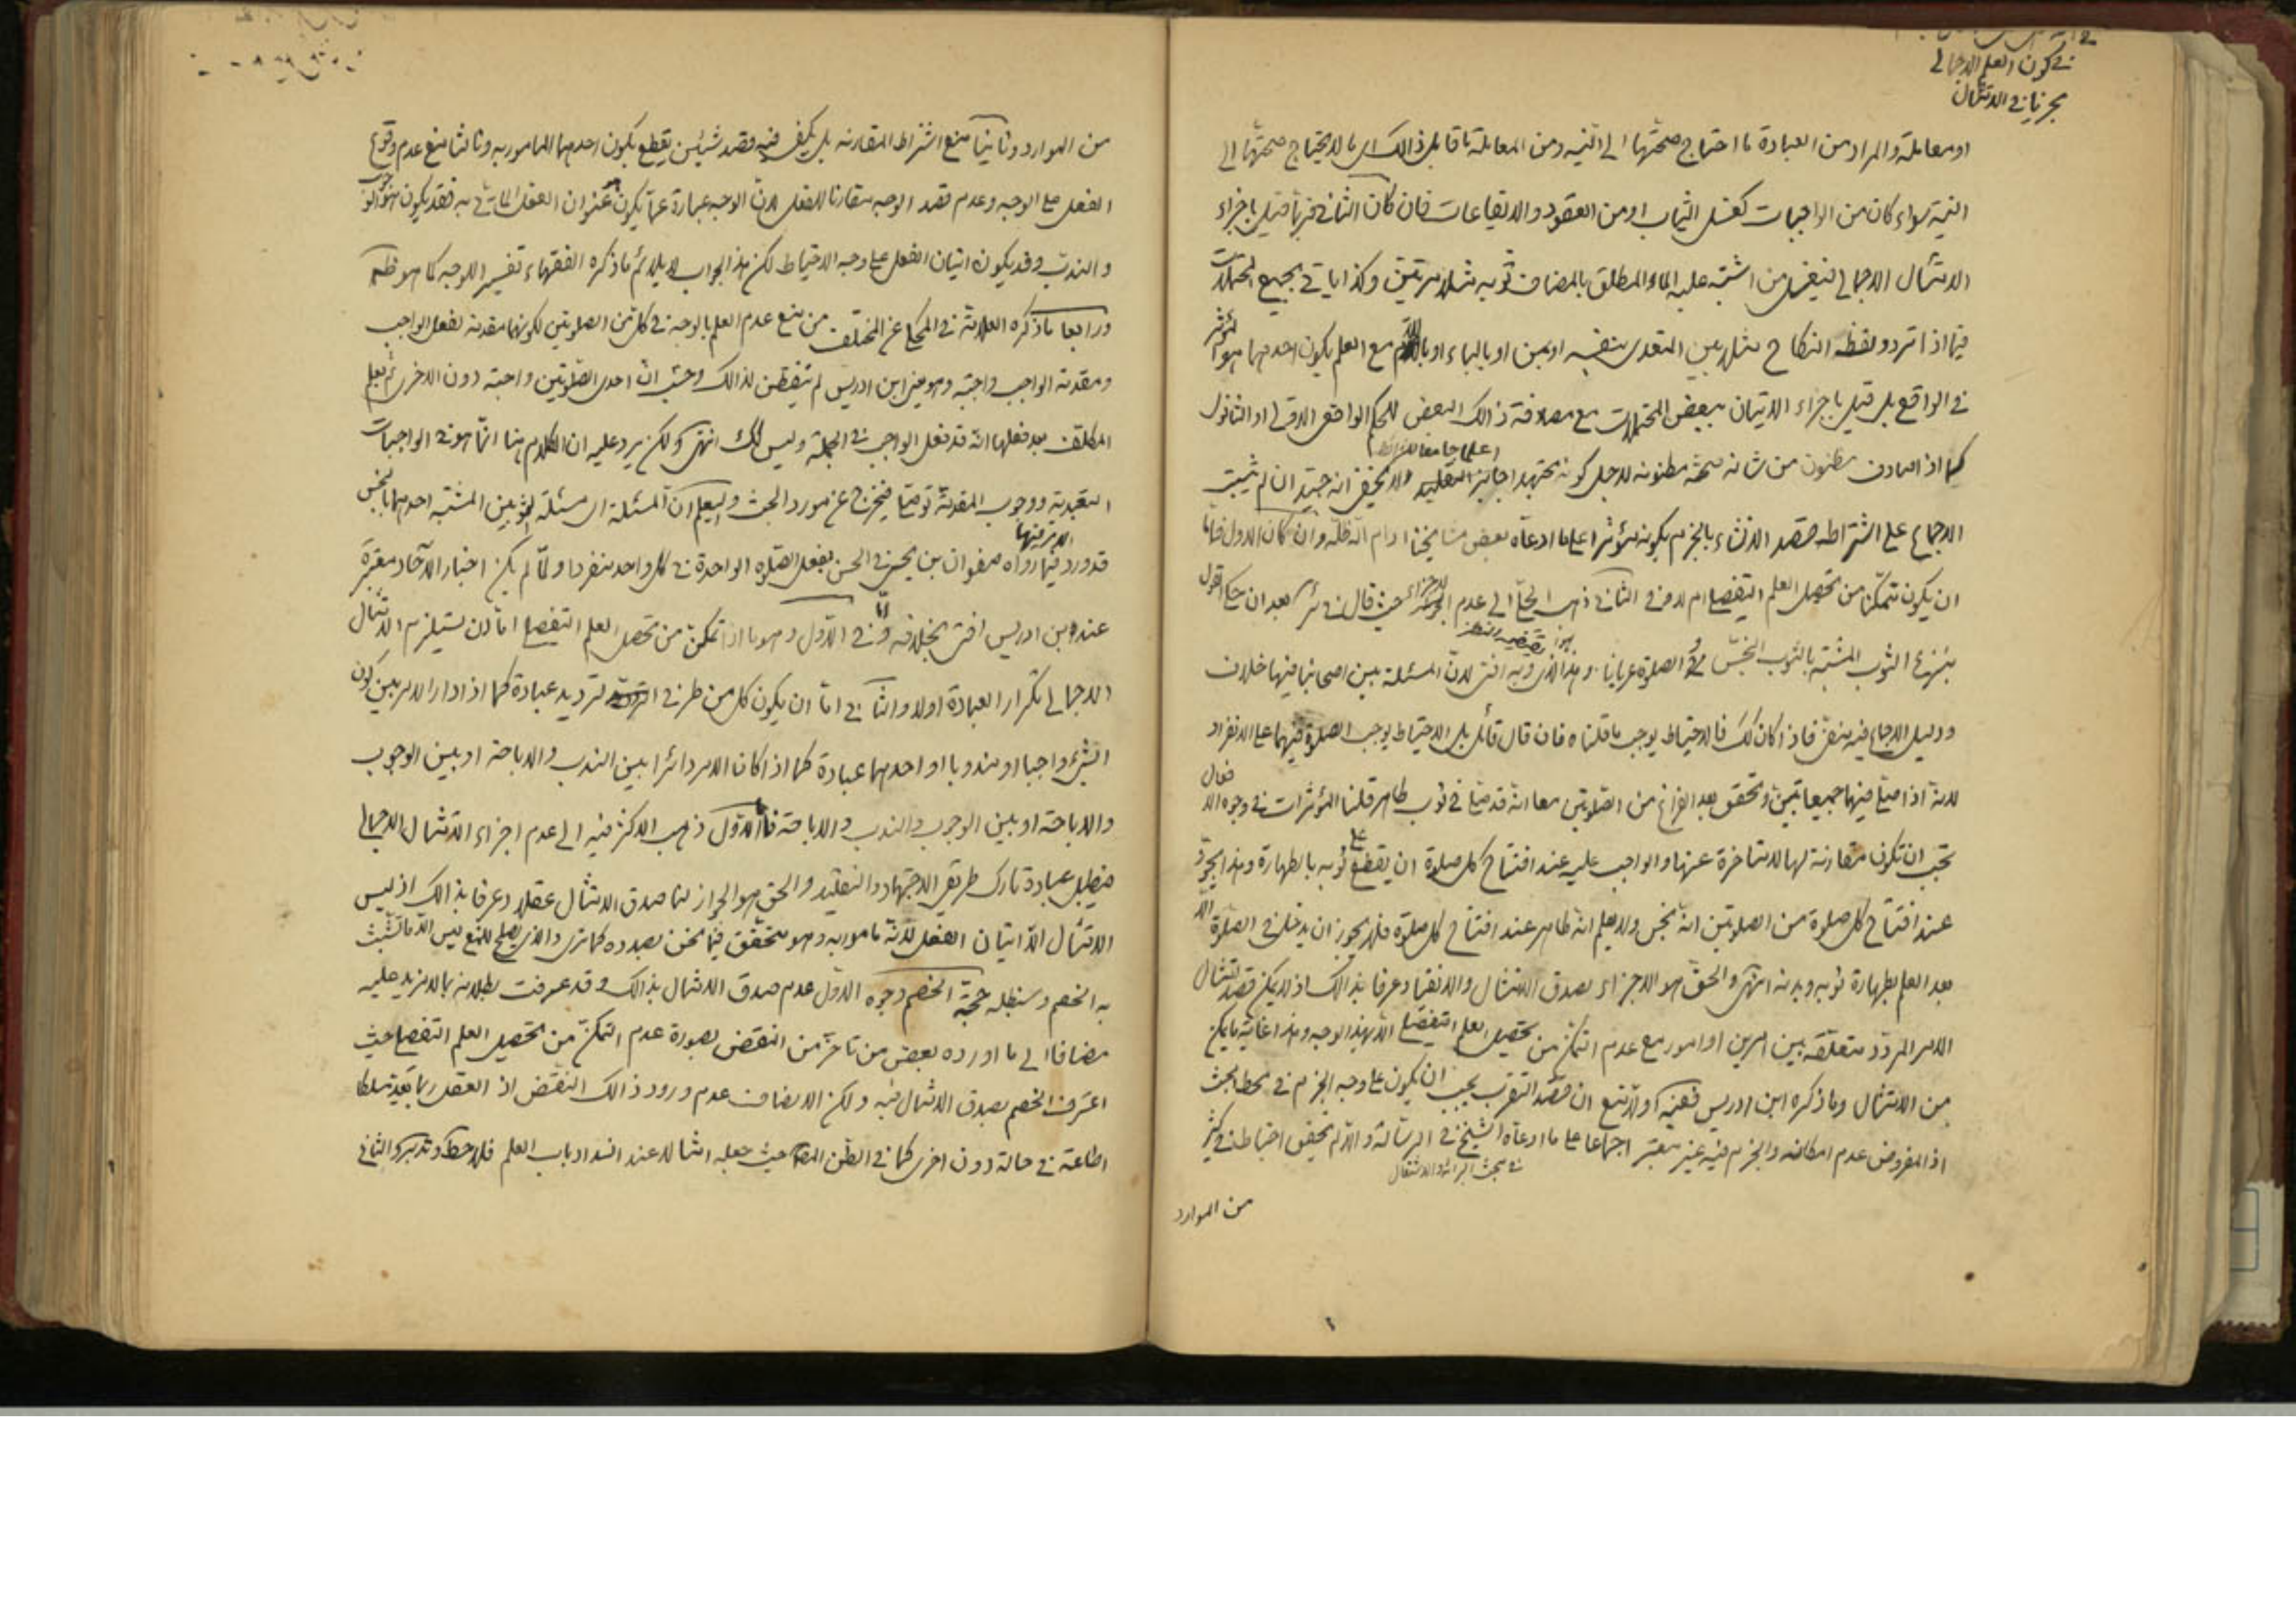 في كون العلم الاجمالي
مجزيا في الامتثال
او معاملة والمراد من العبادة ما احتاج صحتها الى النية ومن المعاملة ما قابل ذالك اى ما لا يحتاج صحتها الى
النية سواء كان من الواجبات كغسل الثياب او من العقود والايقاعات فان كان الثاني فربما قيل باجزاء
الامتثال الاجمالي فيغسل من اشتبه عليه الماء المطلق بالمضاف ثوبه مثلا مرتين وكذا ياتي بجميع المحتملات
فيما اذا تردد لفظ النكاح مثلا بين التعدى بنفسه او بمن او بالباء او باللام مع العلم بكون احدهما هو المؤثر
في الواقع بل قيل باجزاء الاتيان ببعض المحتملات مع مصادفة ذالك البعض للحكم الواقعى الاولى او الثانوى
كما اذا صادف مظنون من شانه صحة مظنونه لاجل كونه مجتهدا جايز التقليد ولا يخفى انه جيد ان لم يثبت
الاجماع على اشتراط قصد الانشاء بالجزم بكونه مؤثرا على ما ادعاه بعض مشايخنا ادام الله ظله وان كان الاول فاما
ان يكون متمكنا من تحصيل العلم التفصيلى ام لا وفي الثاني ذهب الحلى الى عدم الاجزاء حيث قال في ئر بعد ان حكى القول
بنزع الثوب المشتبه بالثوب النجس والصلوة عريانا وهذا الذى وبه افتى لان المسئلة بين اصحابنا فيها خلاف
ودليل الاجماع فيه منفى فاذا كان كك فالاحتياط يوجب ما قلناه فان قال قائل بل الاحتياط يوجب الصلوة فيهما على الانفراد
لانه اذا صلى فيهما جميعا تبين وتحقق بعد الفراغ من الصلوتين معا انه قد صلى في ثوب طاهر قلنا المؤثرات في وجوه الافعال
تجب ان تكون مقارنة لها لا متاخرة عنها والواجب عليه عند افتتاح كل صلوة ان يقطع على ثوبه بالطهارة وهذا يجوز
عند افتتاح كل صلوة من الصلوتين انه نجس ولا يعلم انه طاهر عند افتتاح كل صلوة فلا يجوز ان يدخل في الصلوة الا
بعد العلم بطهارة ثوبه وبدنه انتهى والحق هو الاجزاء لصدق الامتثال والانقياد عرفا بذالك اذ لا يمكن قصد امتثال
الامر المردد متعلقه بين امرين او امور مع عدم التمكن من تحصيل العلم التفصيلى الا بهذا الوجه وهذا غاية ما يمكن
من الامتثال وما ذكره ابن ادريس ففيه اولا منع ان قصد التقرب يجب ان يكون على وجه الجزم في محط البحث
اذ المفروض عدم امكانه والجزم فيه غير معتبر اجماعا على ما ادعاه الشيخ في الرسالة والا لم يتحقق احتياط في كثير
في بحث البرائة والاشتغال
من الموارد
من الموارد وثانيا منع اشتراط المقارنة بل يكفى فيه قصد شيئين يقطع بكون احدهما المامور به وثالثا منع عدم وقوع
الفعل على الوجه وعدم قصد الوجه مقارنا للفعل لان الوجه عبارة عما يكون عنوان الفعل الماتى به فقد يكون هو الوجوب
والندب وقد يكون اتيان الفعل على وجه الاحتياط لكن هذا الجواب لا يلائم ما ذكره الفقهاء تفسيرا للوجه كما هو ظ
ورابعا ما ذكره العلامة في المحكى عن المختلف من منع عدم العلم بالوجه في كل من الصلوتين لكونهما مقدمة لفعل الواجب
ومقدمة الواجب واجبة وهو يعنى ابن ادريس لم يتفطن لذالك وحسب ان احدى الصلوتين واجبة دون الاخرى ثم يعلم
المكلف بعد فعلهما انه قد فعل الواجب في الجملة وليس كك انتهى ولكن يرد عليه ان الكلام هنا انما هو في الواجبات
التعبدية ووجوب المقدمة توصلى فيخرج عن مورد البحث وليعلم ان المسئلة اى مسئلة الثوبين المشتبه احدهما بالنجس
قد ورد فيها رواه صفوان بن يحيى عن ابى الحسن بفعل الصلوة الواحدة في كل واحد منفردا ولما لم يكن اخبار الآحاد معتبرة
عند ابن ادريس افتى بخلافه واما في الاول وهو ما اذا تمكن من تحصيل العلم التفصيلى اما ان يستلزم الامتثال
الاجمالى تكرار العبادة اولا والثاني اما ان يكون كل من طرفى الترديد عبادة كما اذا دار الامر بين كون
الشئ واجبا او مندوبا او احدهما عبادة كما اذا كان الامر دائرا بين الندب والاباحة او بين الوجوب
والاباحة او بين الوجوب والندب والاباحة فالاول ذهب الاكثر فيه الى عدم اجزاء الامتثال الاجمالى
فيبطل عبادة تارك طريقى الاجتهاد والتقليد والحق هو الجواز لنا صدق الامتثال عقلا وعرفا بذالك اذ ليس
الامتثال الا اتيان الفعل لانه مامور به وهو متحقق فيما نحن بصدده كما ترى والذى يصلح للمنع ليس الا ما تشبث
به الخصم وسنبطله حجة الخصم وجوه الاول عدم صدق الامتثال بذالك وقد عرفت بطلانه بما لا مزيد عليه
مضافا الى ما اورده بعض من تاخر من النقض بصورة عدم التمكن من تحصيل العلم التفصيلى حيث
اعترف الخصم بصدق الامتثال فيه ولكن الانصاف عدم ورود ذالك النقض اذ العقل ربما يعد شيئا
اطاعة في حالة دون اخرى كما في الظن المط حيث جعله امتثالا عند انسداد باب العلم فلاحظ وتدبر والثانى